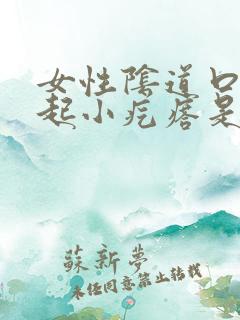 女性陰道口
起小疙瘩是
蘇新夢
未经同意禁止转载